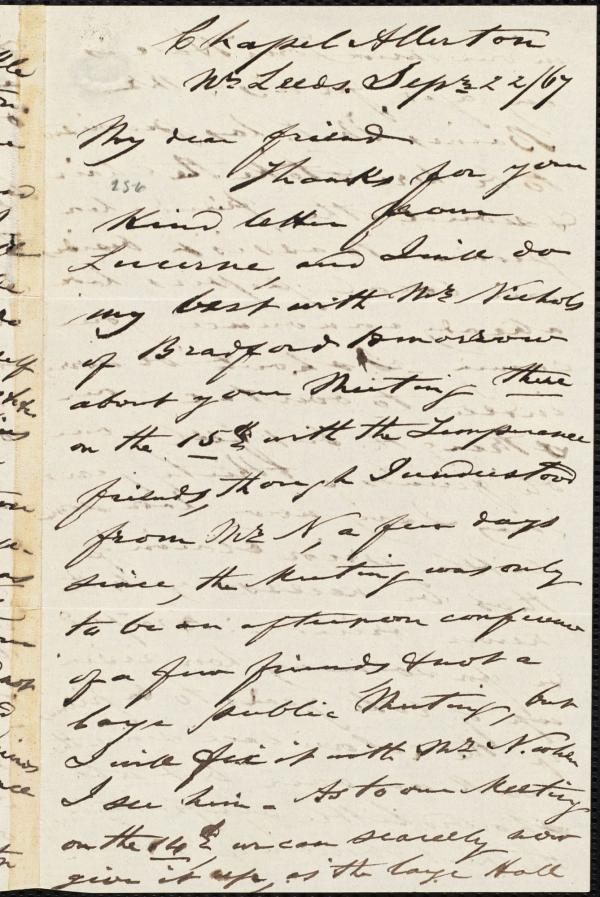 Chapel Allerton
Nr Leeds. Sepr 22/67
My dear friend
Thanks for your
256
kind letter from
Lucerne, and I will do
my best with Mr Nichols
of Bradford tomorrow
about your Meeting there
on the 15th with the Temperance
friends, though I understood
from Mr N, a few days
since, the Meeting was only
to be an afternoon conference
of a few friends & not a
large public Meeting, but
I will fix it with Mr N. when
I see him - As to our Meeting
on the 14th, we can scarcely now
give it up, as the large Hall